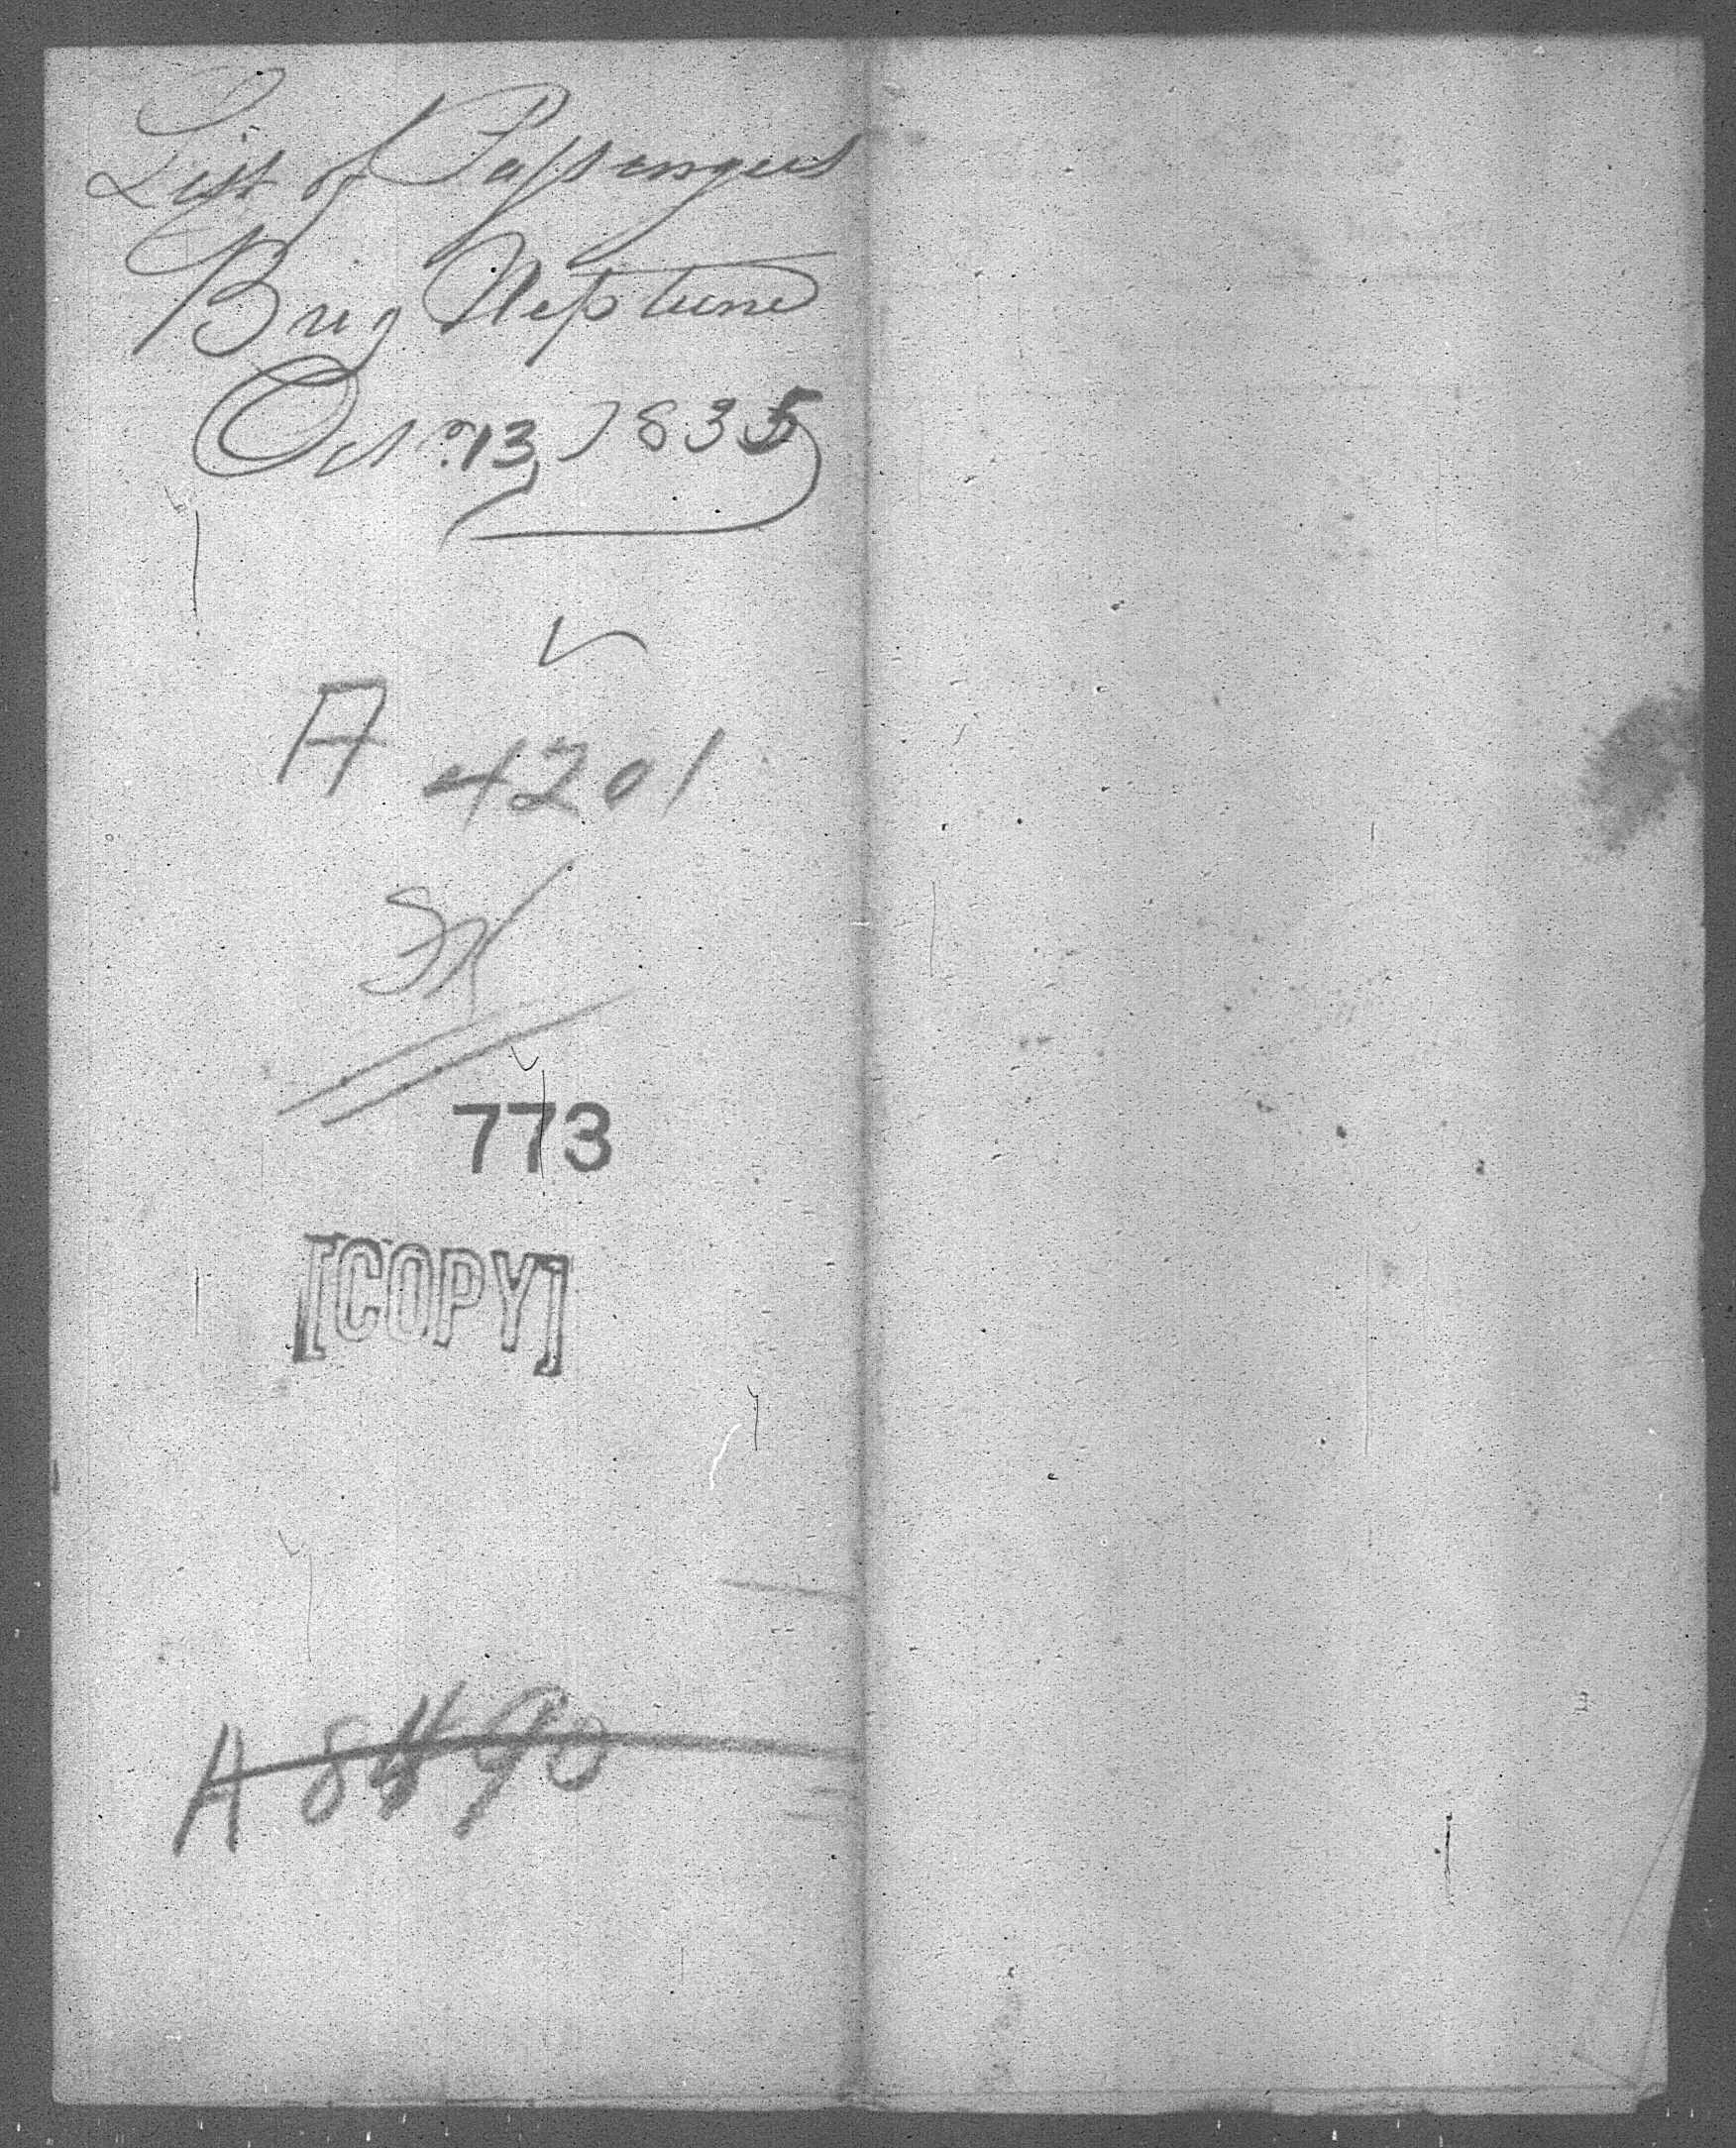 List of Passengers
Brig Neptune
Octr. 13, 1835
A 4201
773
[COPY]
A 8490